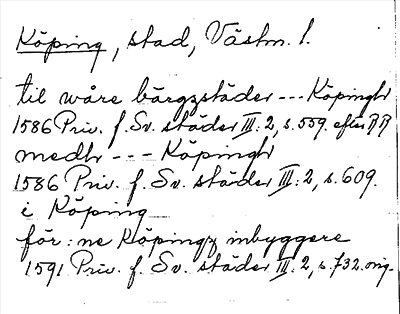 Köping, stad, Västm. l.
til wåre bärgzstäder --- Köpingh
1586 Priv. f. Sv. städer III: 2, s. 559. efter RR
medh --- Köpingh
1586 Priv. f. Sv. städer III: 2, s. 609.
i Köping
för:ne Köpingz inbyggere
1591 Priv. f. Sv. städer III: 2, s. 732. orig.